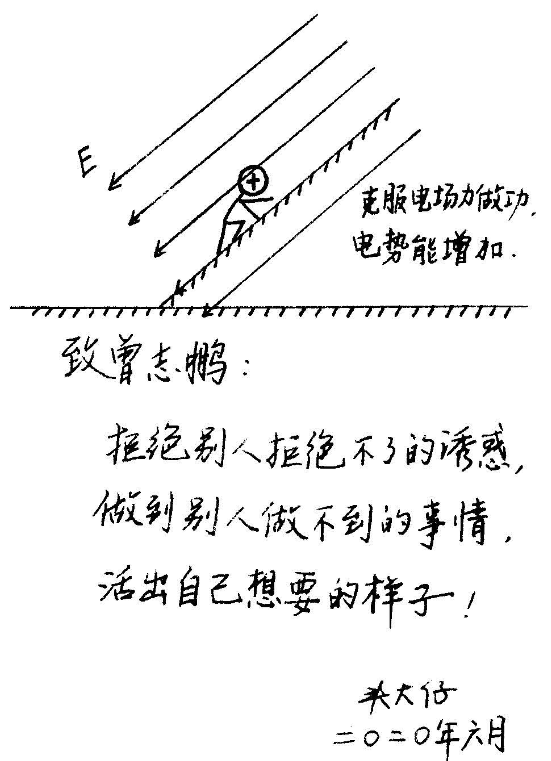 E
克服电场力做功,
电势能增加.
致曾志鹏:
拒绝别人拒绝不了的诱惑,
做到别人做不到的事情,
活出自己想要的样子!
头大仔
二〇二〇年六月